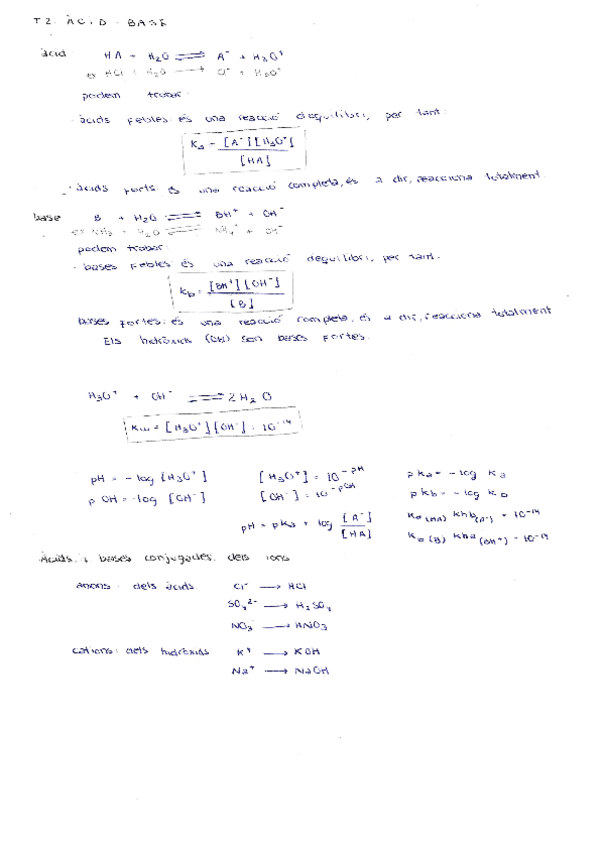 T2. ÀCID - BASE
àcid HA + H₂O ⇌ A⁻ + H₃O⁺
ex HCl + H₂O → Cl⁻ + H₃O⁺
podem trobar:
· àcids febles: és una reacció d'equilibri, per tant:
Ka = [A⁻][H₃O⁺] / [HA]
· àcids forts: és una reacció completa, és a dir, reacciona totalment.
base B + H₂O ⇌ BH⁺ + OH⁻
ex NH₃ + H₂O ⇌ NH₄⁺ + OH⁻
podem trobar:
· bases febles: és una reacció d'equilibri, per tant:
Kb = [BH⁺][OH⁻] / [B]
bases fortes: és una reacció completa, és a dir, reacciona totalment
Els hidròxids (OH) són bases fortes.
H₃O⁺ + OH⁻ ⇌ 2 H₂O
Kw = [H₃O⁺][OH⁻] = 10⁻¹⁴
pH = - log [H₃O⁺] [H₃O⁺] = 10^-pH pka = - log ka
pOH = - log [OH⁻] [OH⁻] = 10^-pOH pkb = - log kb
pH = pka + log [A⁻] / [HA] Ka (HA) khb (A⁻) = 10⁻¹⁴
Kb (B) kha (BH⁺) = 10⁻¹⁴
Àcids i bases conjugades dels ions
anions: dels àcids Cl⁻ → HCl
SO₄²⁻ → H₂SO₄
NO₃⁻ → HNO₃
cations: dels hidròxids K⁺ → KOH
Na⁺ → NaOH